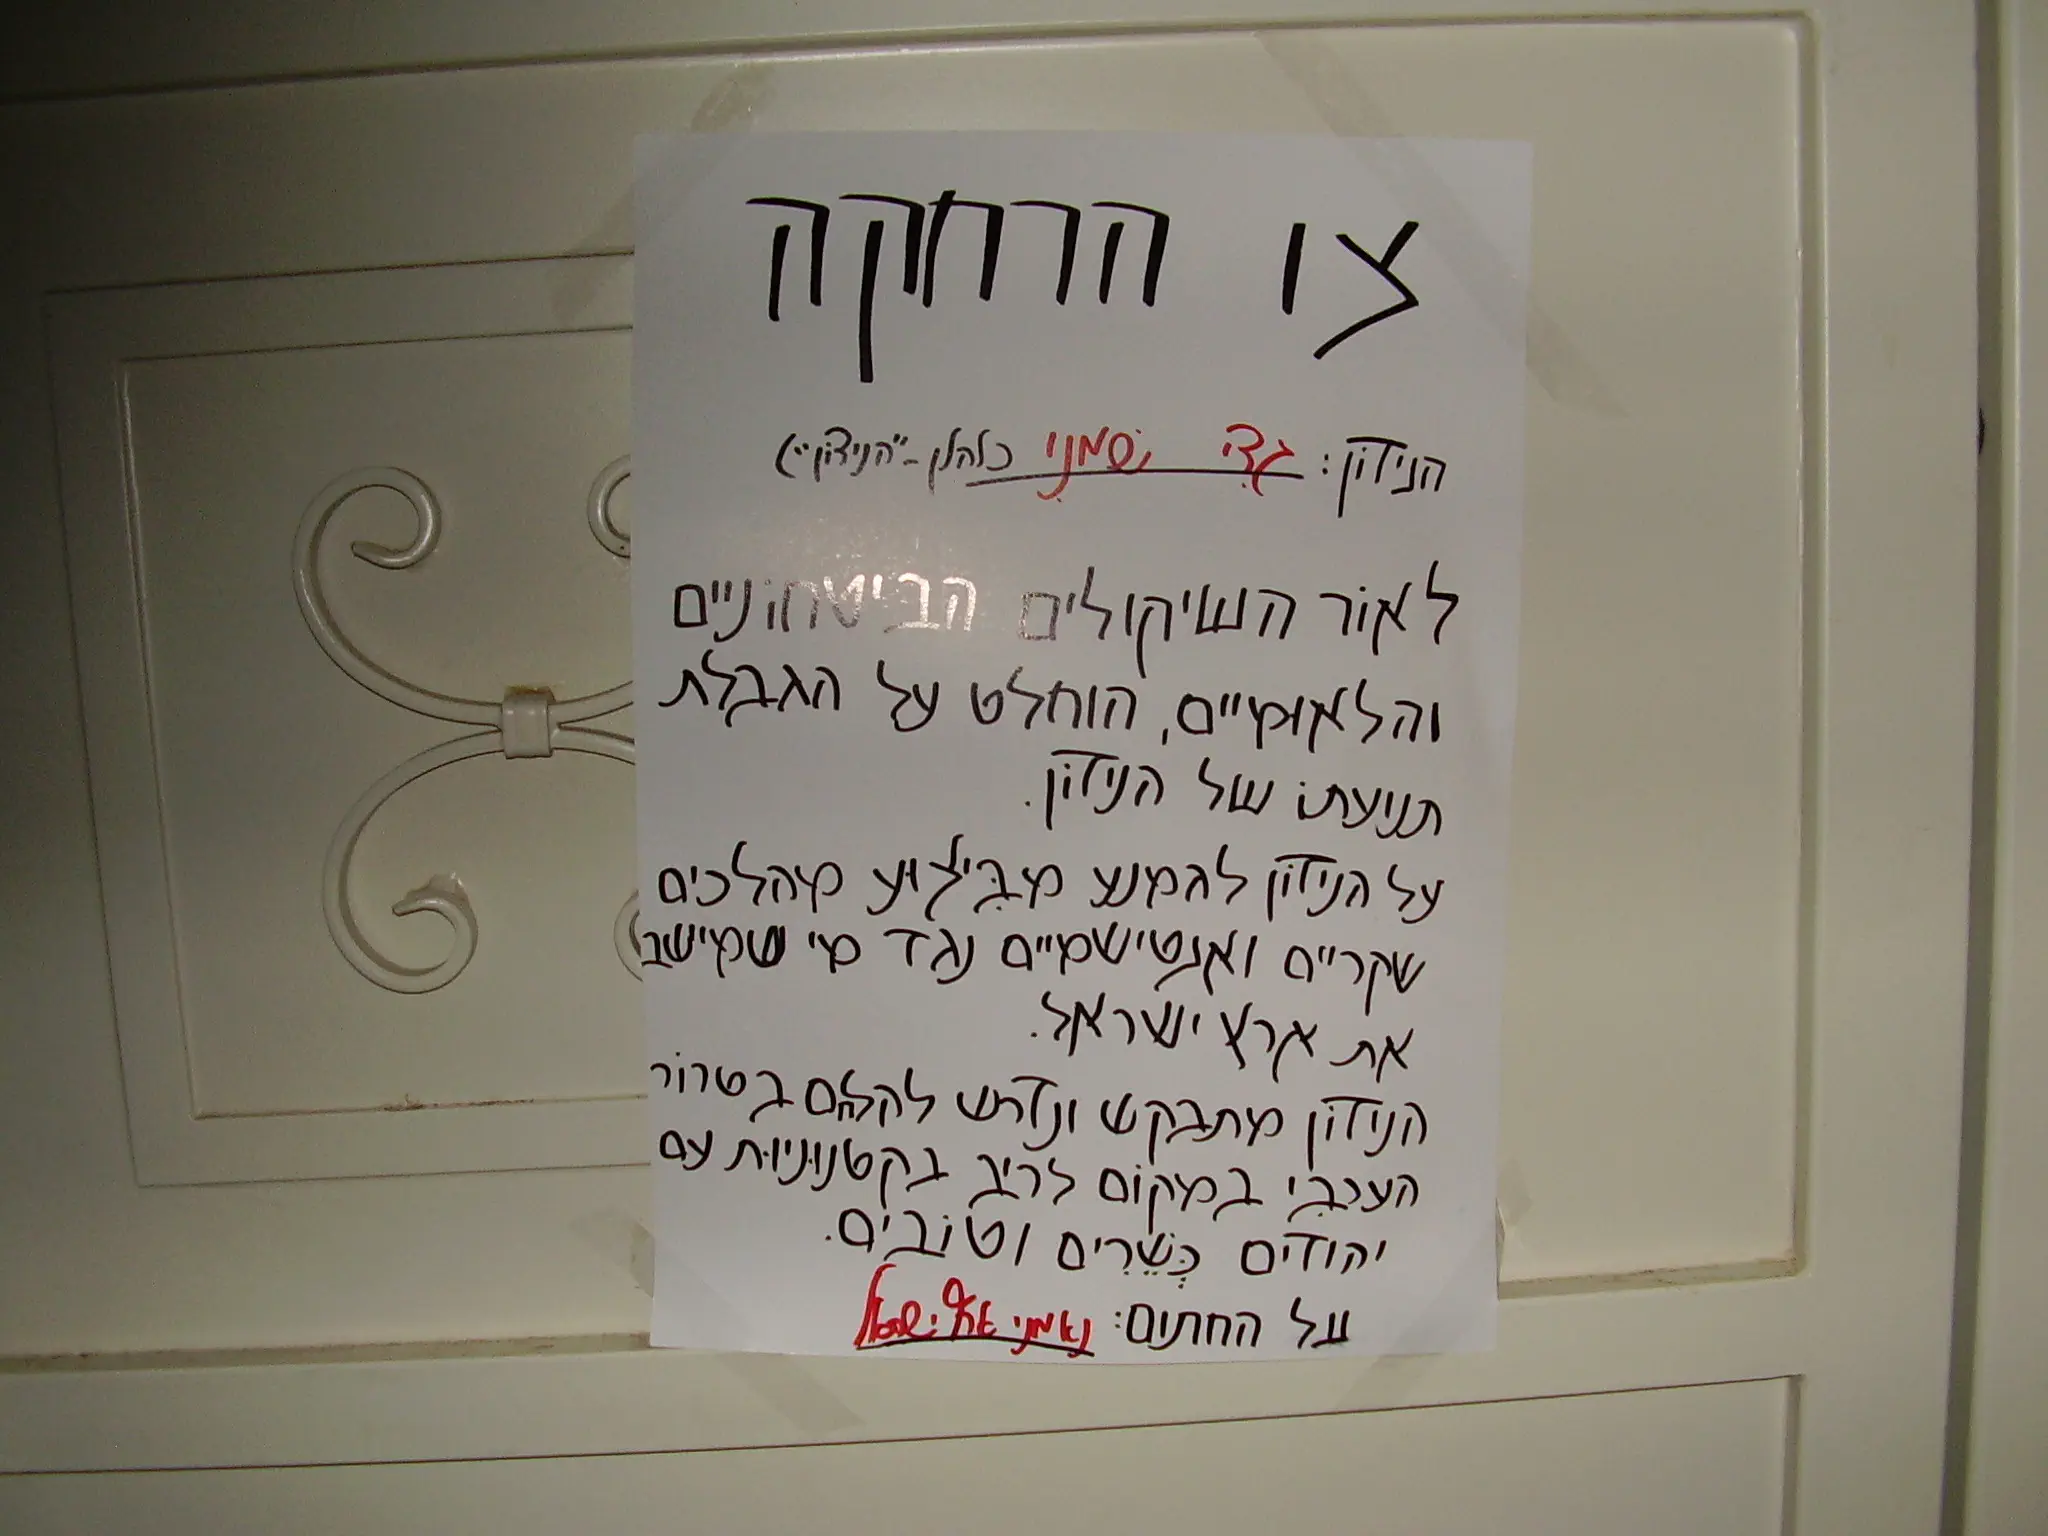 צו הרחקה
הנידון: גדי שמני כלהלן -"הנידון")
לאור השיקולים הביטחוניים
והלאומיים, הוחלט על הגבלת
תניעתו של הנידון.
על הנידון להמנע מביצוע מהלכים
שקריים ואנטישמיים נגד מי שמישב
את ארץ ישראל.
הנידון מתבקש ונדרש להלחם בטרור
הערבי במקום לריב בקטנוניות עם
יהודים כְּשֵׁרִים וטובים.
על החתום: נאמני ארץ ישראל